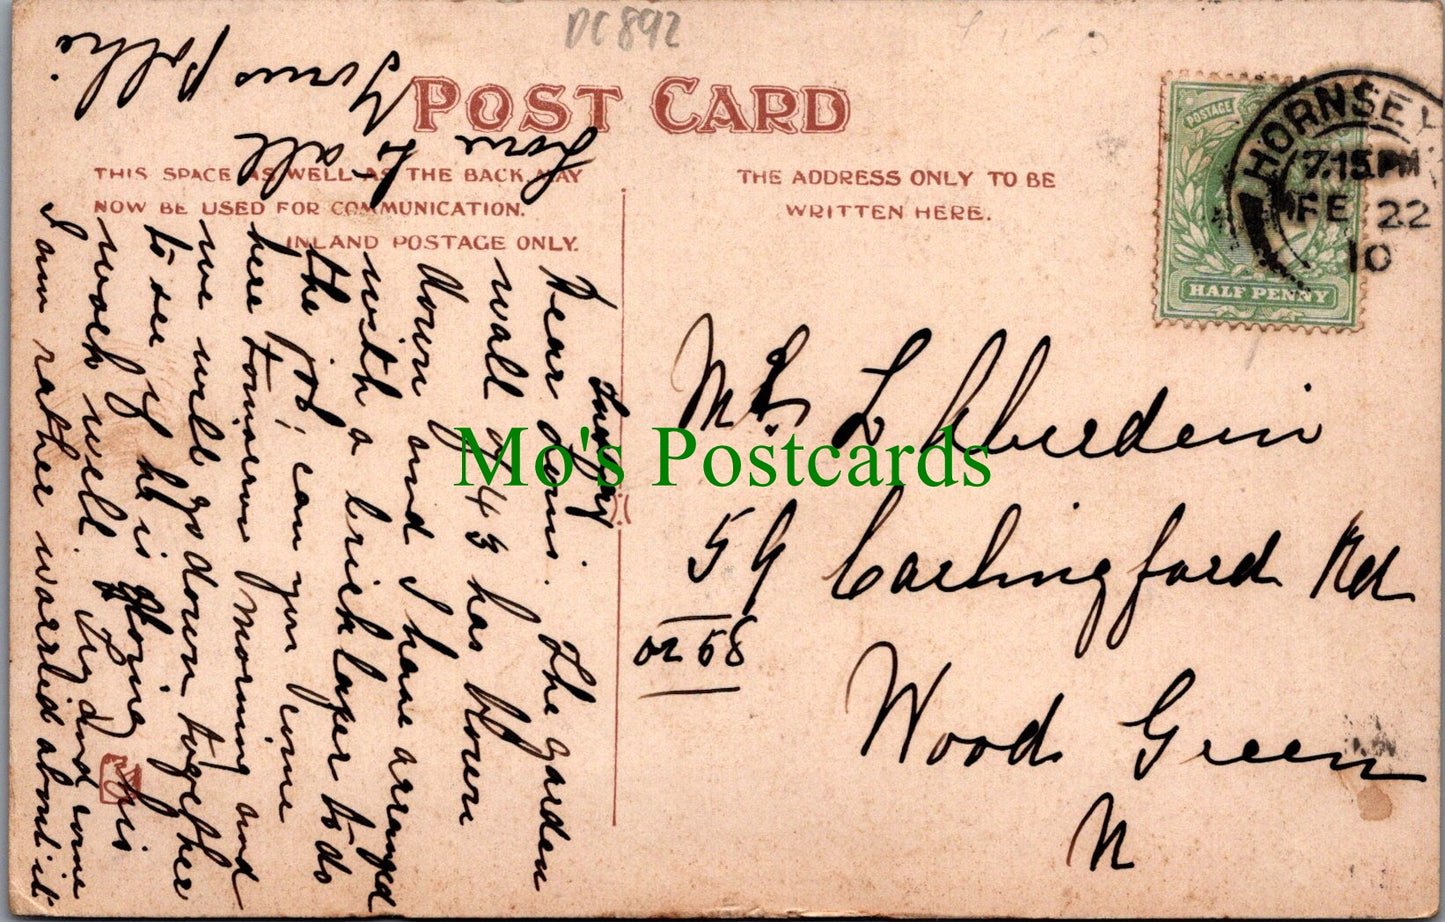 DC892
POST CARD
THIS SPACE AS WELL AS THE BACK MAY
NOW BE USED FOR COMMUNICATION.
INLAND POSTAGE ONLY.
THE ADDRESS ONLY TO BE
WRITTEN HERE.
POSTAGE
HALF PENNY
HORNSEY
7.15 PM
FE 22
10
Tuesday
Dear Louis. The garden
wall of 43 has blown
down and I have arranged
with a bricklayer to do
the job; can you come
here tomorrow morning and
we will go down together
to see if he is doing his
work well. Try and come
I am rather worried about it
Love to all
Yours Pollie
Mr L Aberdein
59 Carlingford Rd
or 58
Wood Green
N
Mo's Postcards